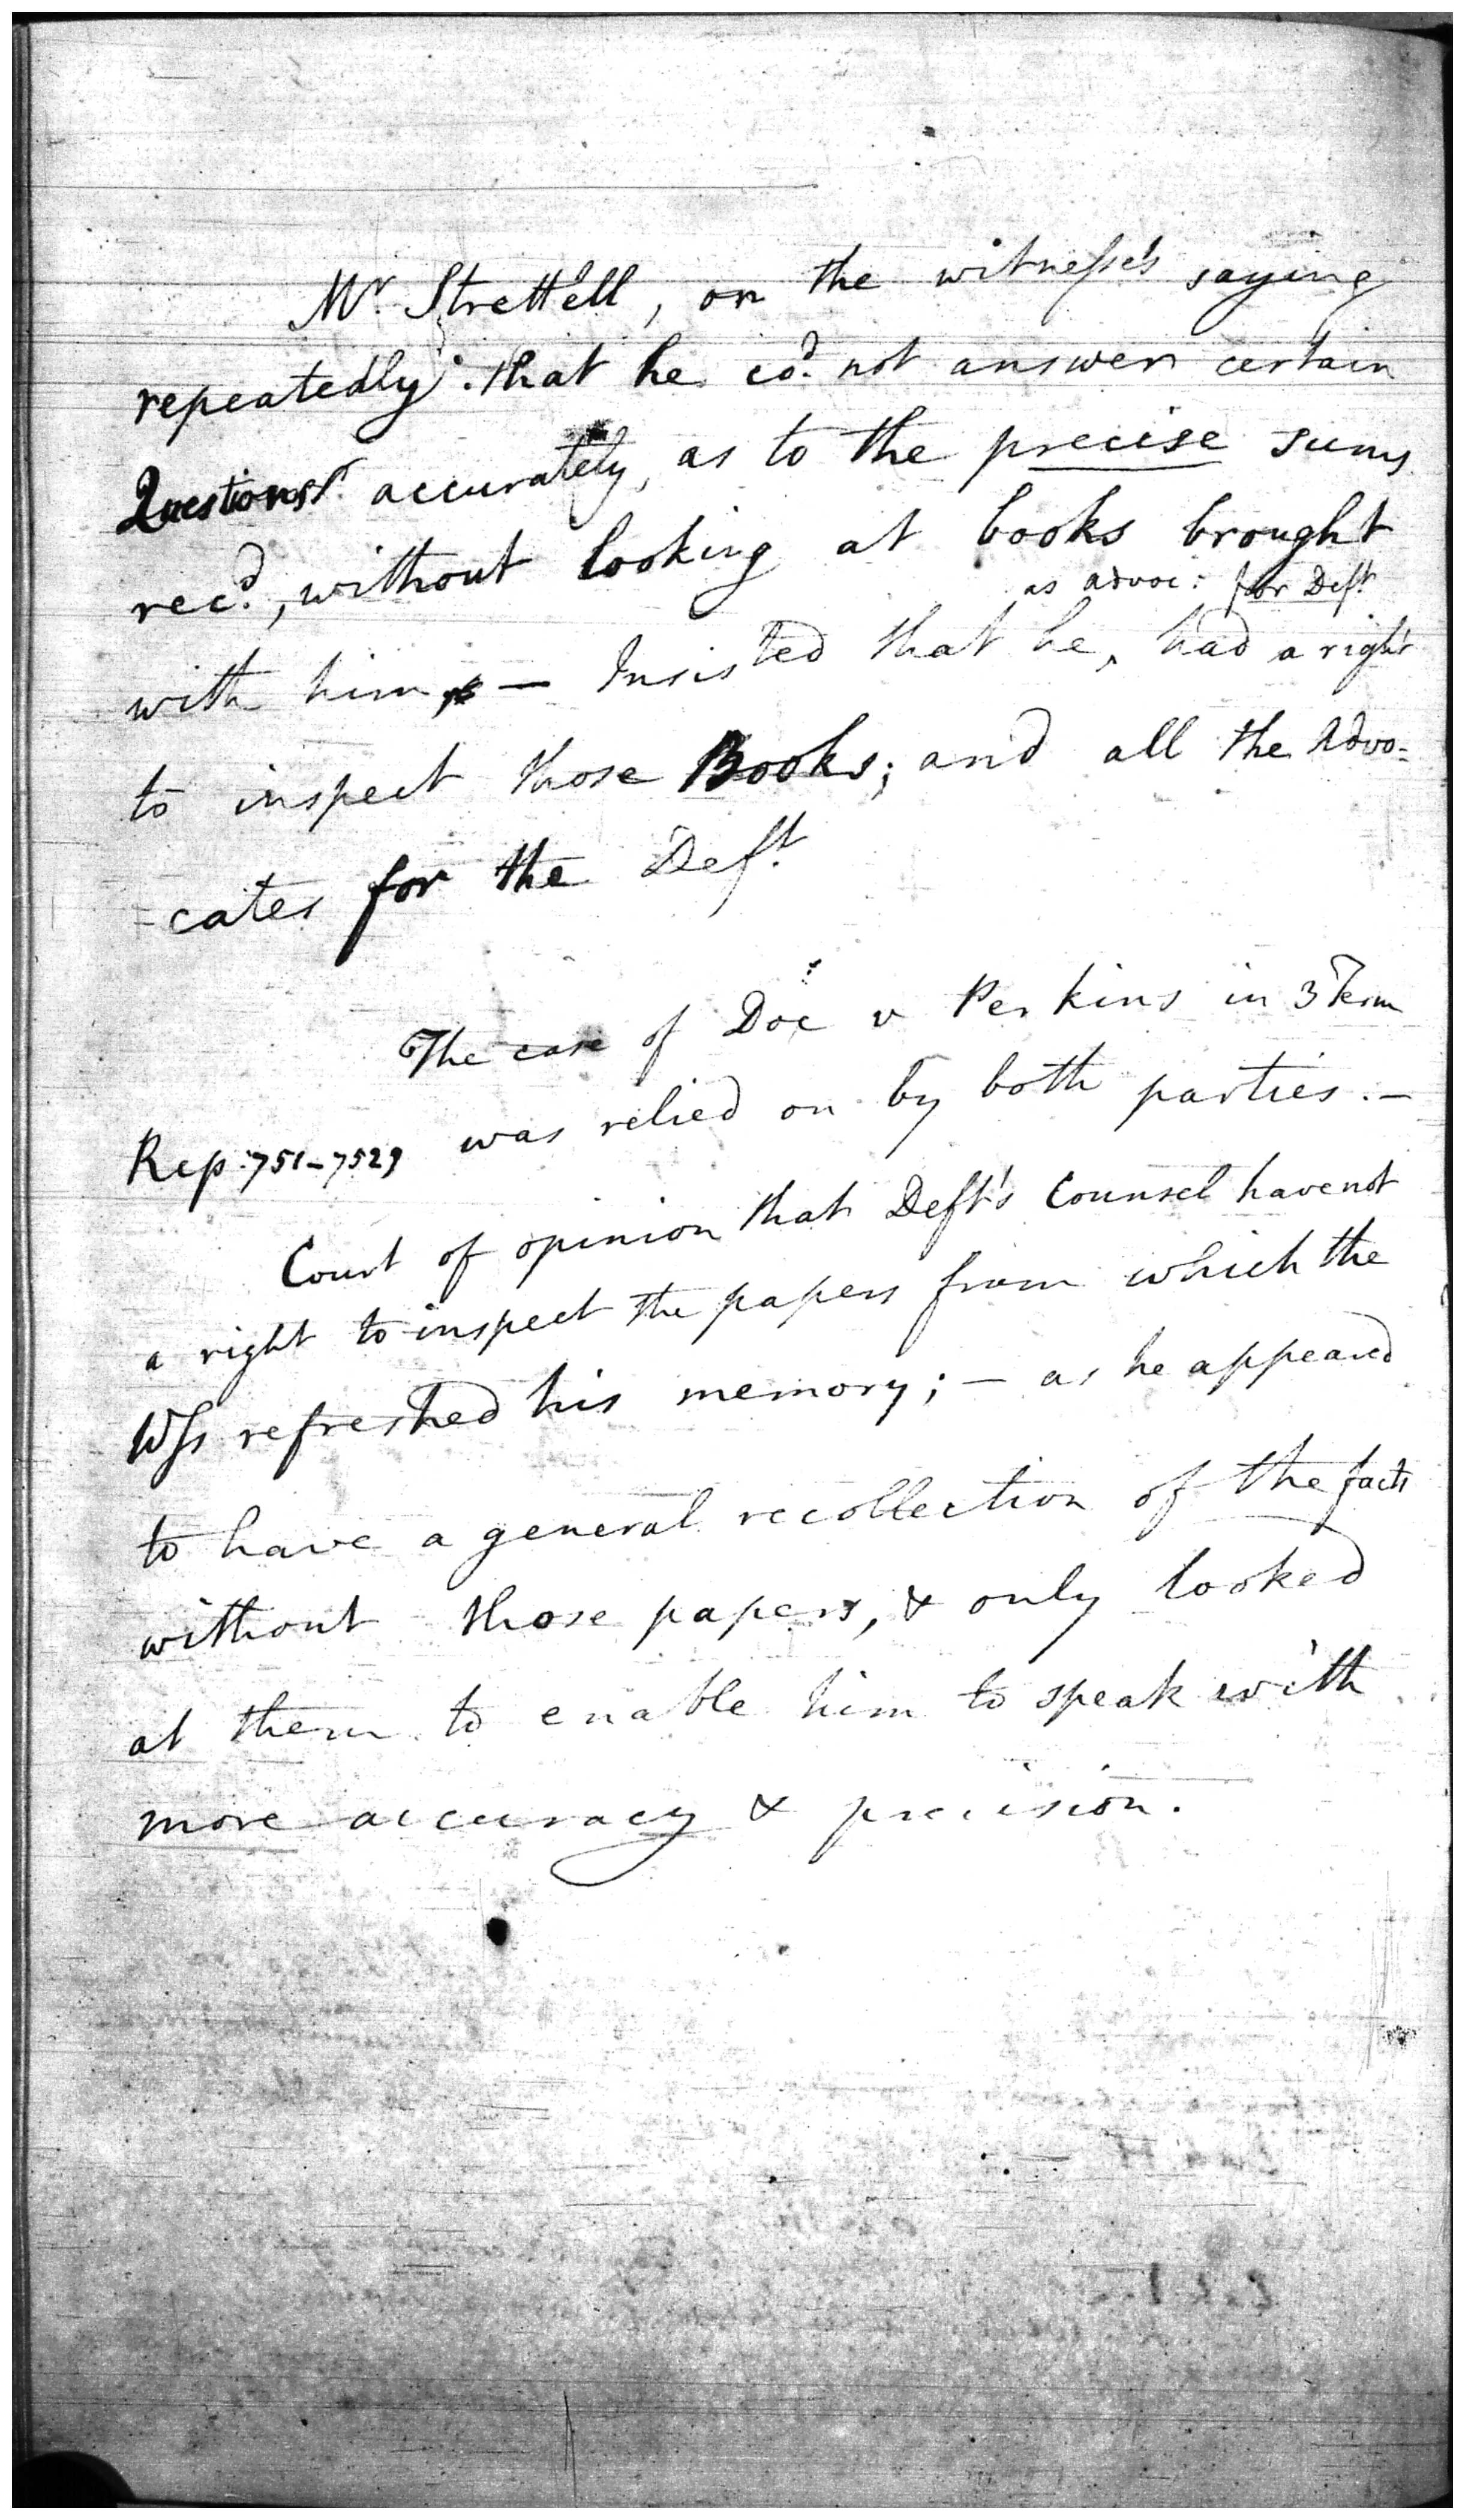 Mr. Strettell, on the witness's saying
repeatedly that he cod. not answer certain
Questions accurately, as to the precise sums
recd., without looking at books brought
as advoc: for Deft.
with him, — Insisted that he, had a right
to inspect those Books; and all the Advo-
-cates for the Deft.
The case of Doe v Perkins in 3 Term
Rep: 751-752 was relied on by both parties. —
Court of opinion that Deft's Counsel have not
a right to inspect the papers from which the
Wss refreshed his memory; — as he appeared
to have a general recollection of the facts
without those papers, & only looked
at them to enable him to speak with
more accuracy & precision.